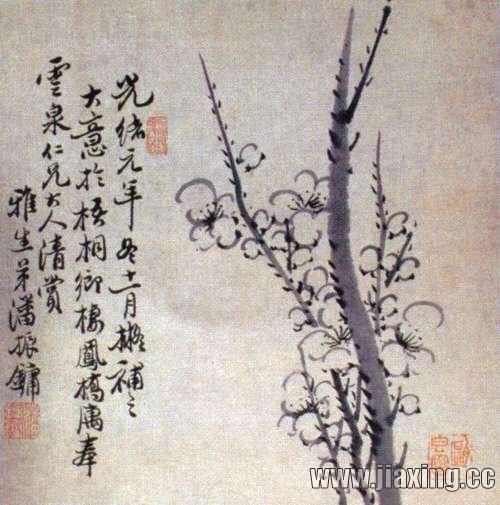 光緒元年冬十一月擬補之
大意於梧桐鄉棲鳳橋寓奉
雲泉仁兄大人清賞
雅生弟潘振鏞
www.jiaxing.cc